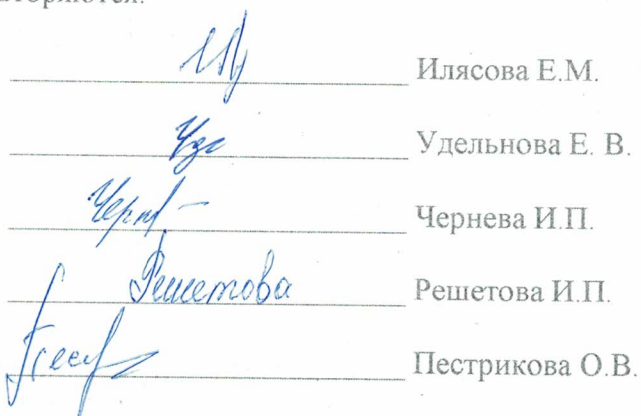 Илясова Е.М.
Удельнова Е. В.
Чернева И.П.
Решетова Решетова И.П.
Пестрикова О.В.